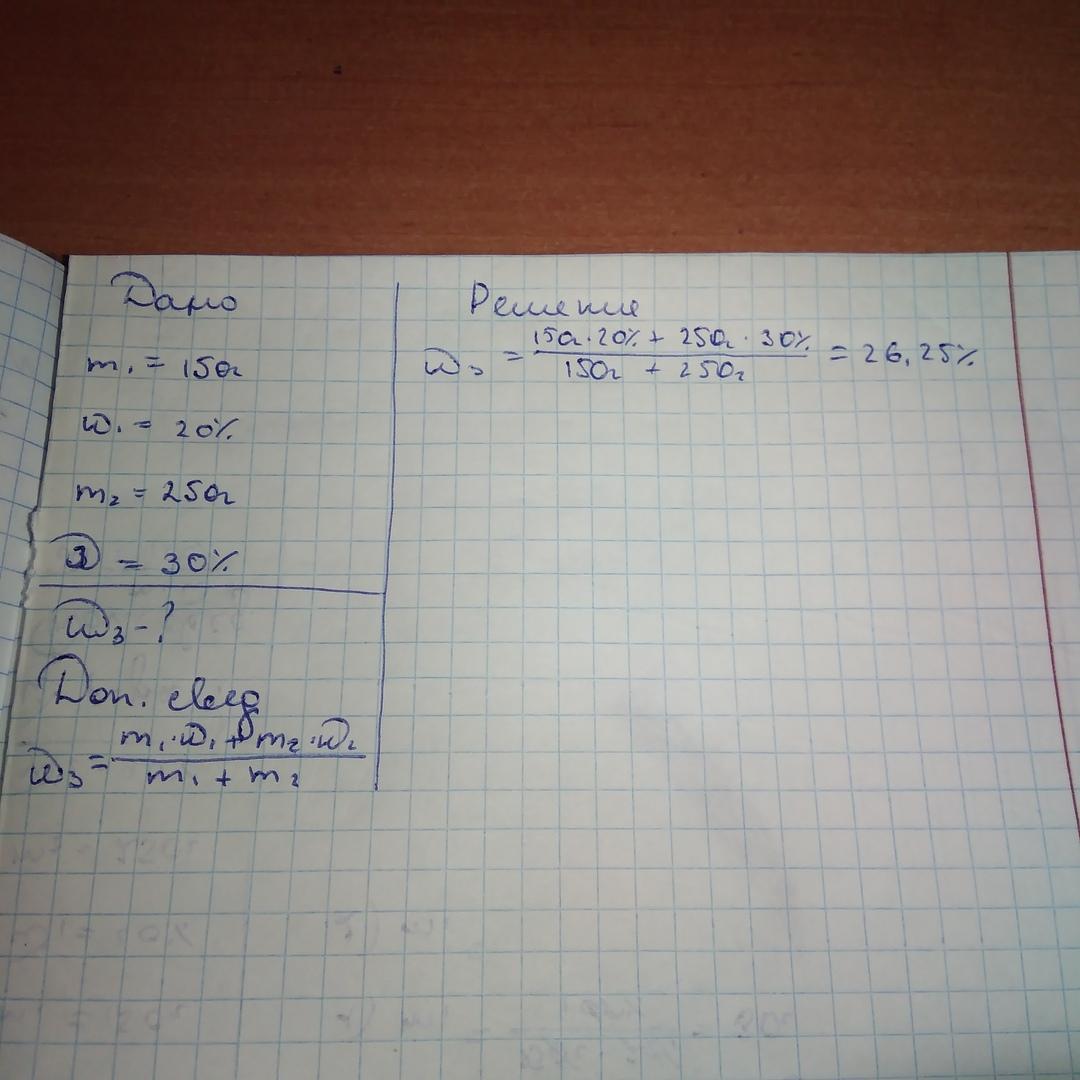 Дано
m₁ = 150г
ω₁ = 20%
m₂ = 250г
= 30%
ω₃ - ?
Доп. свед
ω₃ = (m₁·ω₁ + m₂·ω₂) / (m₁ + m₂)
Решение
ω₃ = (150г·20% + 250г·30%) / (150г + 250г) = 26,25%